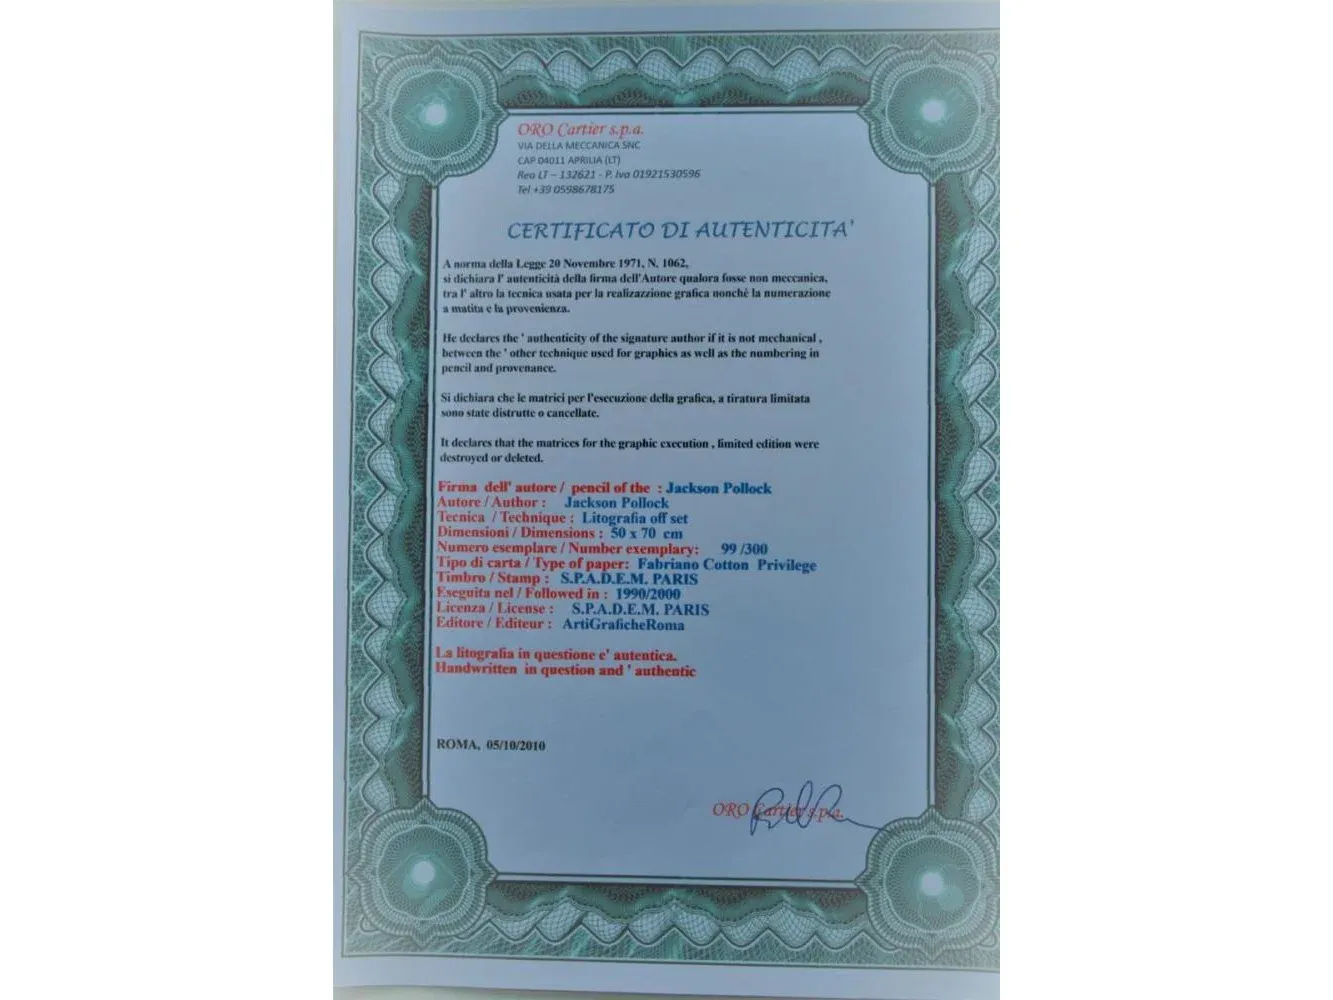 ORO Cartier s.p.a.
VIA DELLA MECCANICA SNC
CAP 04011 APRILIA (LT)
Rea LT – 132621 - P. Iva 01921530596
Tel +39 0598678175
CERTIFICATO DI AUTENTICITA'
A norma della Legge 20 Novembre 1971, N. 1062,
si dichiara l' autenticità della firma dell'Autore qualora fosse non meccanica,
tra l' altro la tecnica usata per la realizazzione grafica nonchè la numerazione
a matita e la provenienza.
He declares the ' authenticity of the signature author if it is not mechanical ,
between the ' other technique used for graphics as well as the numbering in
pencil and provenance.
Si dichiara che le matrici per l'esecuzione della grafica, a tiratura limitata
sono state distrutte o cancellate.
It declares that the matrices for the graphic execution , limited edition were
destroyed or deleted.
Firma dell' autore / pencil of the : Jackson Pollock
Autore / Author : Jackson Pollock
Tecnica / Technique : Litografia off set
Dimensioni / Dimensions : 50 x 70 cm
Numero esemplare / Number exemplary: 99 /300
Tipo di carta / Type of paper: Fabriano Cotton Privilege
Timbro / Stamp : S.P.A.D.E.M. PARIS
Eseguita nel / Followed in : 1990/2000
Licenza / License : S.P.A.D.E.M. PARIS
Editore / Editeur : ArtiGraficheRoma
La litografia in questione e' autentica.
Handwritten in question and ' authentic
ROMA, 05/10/2010
ORO Cartier s.p.a.